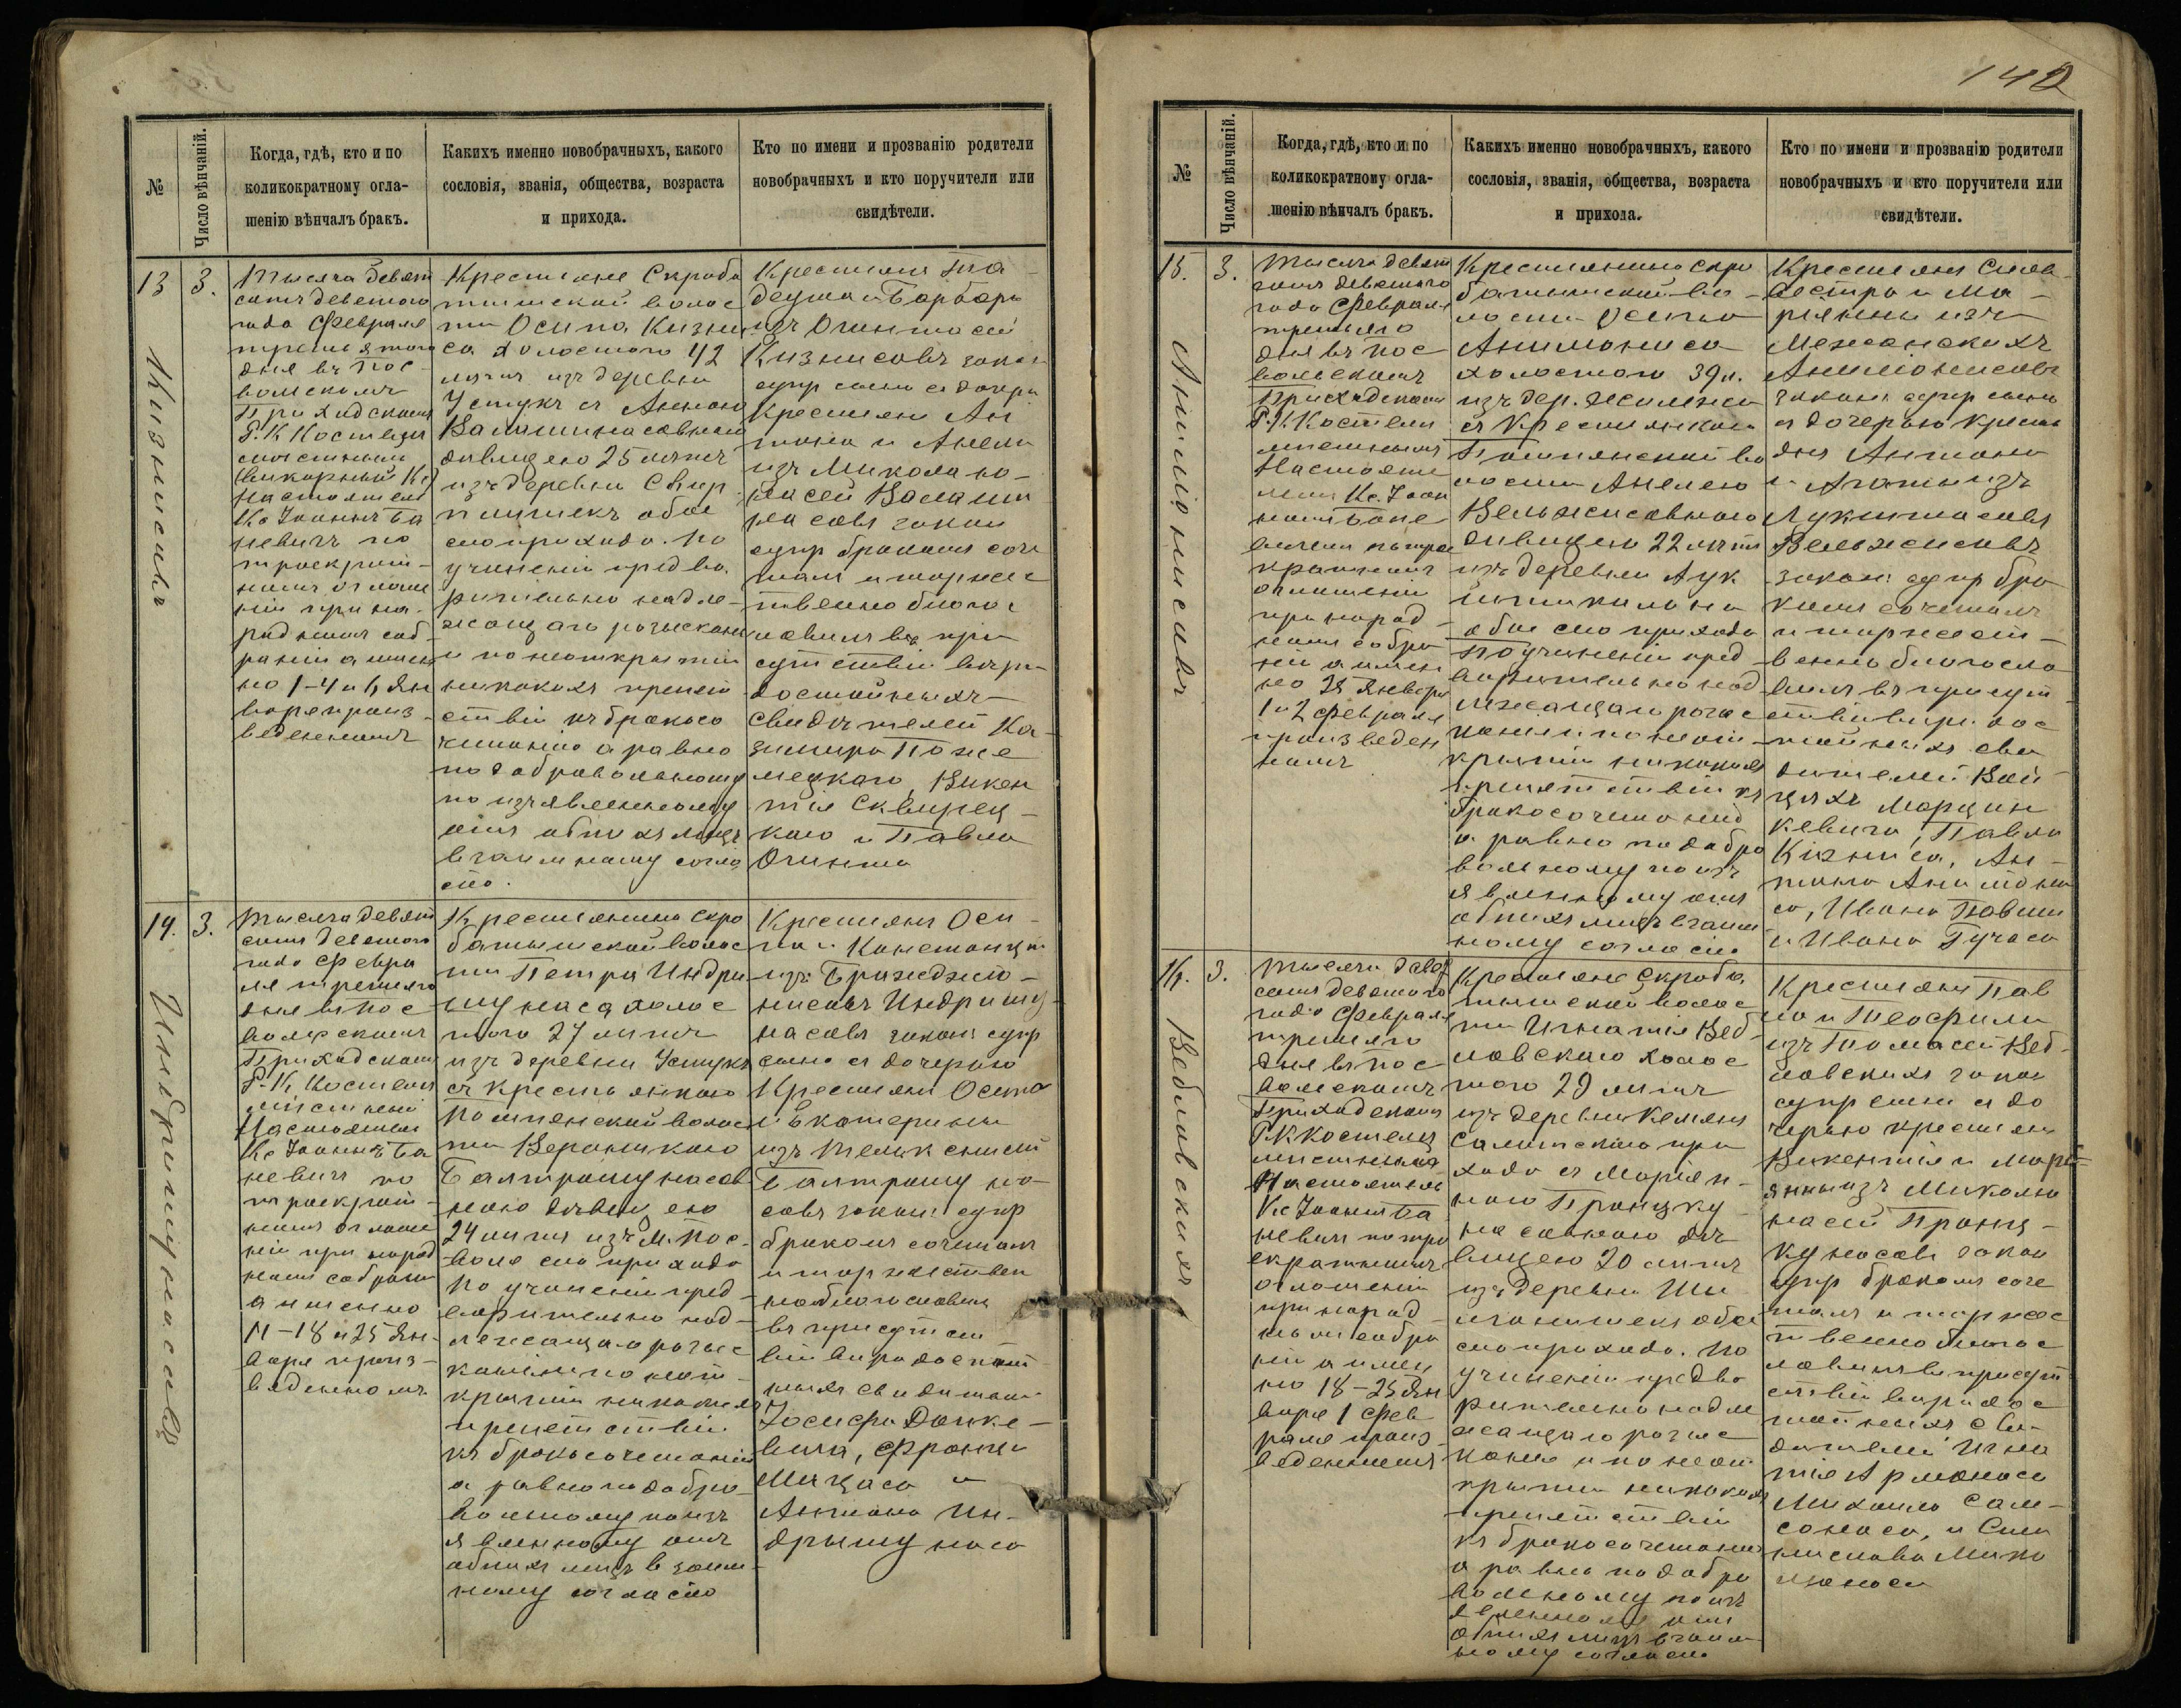 142
№
Число вѣнчаній.
Когда, гдѣ, кто и по
коликократному огла-
шенію вѣнчалъ бракъ.
Какихъ именно новобрачныхъ, какого
сословія, званія, общества, возраста
и прихода.
Кто по имени и прозванію родители
новобрачныхъ и кто поручители или
свидѣтели.
13
3.
Кизнисъ
Тысяча девят
сотъ девятого
года Февраля
третьятого
дня въ Пос-
вольскомъ
Приходскомъ
Р. К Костелѣ
мѣстным
Викарный Кс
Настоятель
Кс Іоаннъ Ба
невичъ по
троекрат-
номъ оглаше
ніи при на-
родномъ соб-
раніи а имен
но 1-4 и 6 Ян
варя произ-
веденномъ
Крестьяне Скроба
тишской волос
ти Осипа Кизни
са холостого 42
лѣтъ изъ деревни
Устукъ съ Анною
дѣвицею 25 лѣтъ
изъ деревни Свир
плишекъ обое
сего прихода. По
учиненіи предва
рительно надле-
жащаго розыскані
и по неоткрытіи
никакихъ препят
ствій къ бракосо
четанію а равно
по добровольному
по изъявленному
отъ обоихъ лицъ
взаимному согла
сію.
Крестьянъ Та-
деуша и Барбары
изъ Огинтасей
Кизнисовъ закон
супр сына съ дочерью
Крестьян Ан
тона и Анели
изъ Микола ю-
насей Валаши
насовъ закон
супр бракомъ соче
талъ и торжес
твенно благос
ловилъ въ при
сутствіи вѣро-
достойныхъ
Свидѣтелей Ка-
зимира Поже
лецкаго, Викен
тія Сквирец
каго и Павла
Огинта
14.
3.
Индришунасъ
Тысяча девят
сотъ девятого
года Февра
ля третьяго
дня въ Пос-
вольскомъ
Приходскомъ
Р. К. Костелѣ
мѣстный
Настоятель
Кс Іоаннъ Ба
невичъ по
троекрат-
номъ оглаше
ніи при народ
номъ собраніи
а именно
11-18 и 25 Ян-
варя произ-
веденномъ
Крестьянина Скро
батышской волос
ти Петра Индри
шунаса холос
того 27 лѣтъ
изъ деревни Устукъ
съ Крестьянкою
Помпянской волос
ти Вероникою
Балтрошунасов
ною дѣвицею
24 лѣтъ изъ М. Пос-
воля сего прихода
По учиненіи пред-
варительно над-
лежащаго розыс
каніи по неот-
крытіи никакихъ
препятствій
къ бракосочетанію
а равно по добро-
вольному по изъ
явленному отъ
обоихъ лицъ взаим-
ному согласію
Крестьянъ Оси-
па и Констанціи
нисовъ Индришу-
насовъ закон супр
сына съ дочерью
Крестьян Осипа
и Екатерины
Балтрошу на-
совъ закон супр
бракомъ сочеталъ
и торжествен
но благословилъ
въ присутст-
віи вѣродостой
ныхъ свидѣтелей
Іосифа Данке-
вича, Франца
Мицаса и
Антона Ин-
дришунаса
№
Число вѣнчаній.
Когда, гдѣ, кто и по
коликократному огла-
шенію вѣнчалъ бракъ.
Какихъ именно новобрачныхъ, какого
сословія, званія, общества, возраста
и прихода.
Кто по имени и прозванію родители
новобрачныхъ и кто поручители или
свидѣтели.
15.
3.
Анимонисъ
Тысяча девят
сотъ девятого
года Февраля
третьяго
дня въ Пос-
вольскомъ
Приходскомъ
Р. К Костелѣ
мѣстнымъ
Настояте
лемъ Кс. Іоан
номъ Бане-
вичемъ по трое
кратномъ
оглашеніи
при народ
номъ собра
ніи а имен
но 25 Января
1 и 2 Февраля
произведен
номъ
Крестьянина Скро
батышской во-
лости Осипа
Анимониса
холостого 39 л.
изъ дер. Жилеина
съ Крестьянкою
Помпянской во
лости Анелею
Вельжисовною
дѣвицею 22 лѣтъ
изъ деревни Лук
обое сего прихода
По учиненіи пред
варительно над
лежащаго розыс
каніи по неот-
крытіи никакихъ
препятствій къ
бракосочетанію
а равно по добро
вольному по изъ
явленному отъ
обоихъ лицъ взаим
ному согласію
Крестьянъ Силь-
вестра и Ма-
ріянны изъ
Межанскихъ
Анимонисовъ
закон супр сына
съ дочерью Кресть
янъ Антона
и Агаты изъ
Лукштасовъ
Вельжисовъ
закон супр бра
комъ сочеталъ
и торжест-
венно благосло
вилъ въ присут
ствіи вѣродос
тойныхъ сви
дѣтелей Вой
цеха Марцин
кевича, Павла
Кизниса, Ан-
тона Анимони
са, Ивана Повили
и Ивана Гучаса
16.
3.
Вебловскихъ
Тысяча девят
сотъ девятого
года Февраля
третьяго
дня въ Пос-
вольскомъ
Приходскомъ
Р. К Костелѣ
мѣстный
Настоятель
Кс Іоаннъ Ба
невичъ по тро
екратномъ
оглашеніи
при народ
номъ собра
ніи а имен
но 18-25 Ян
варя 1 Фев
раля произ
веденномъ
Крестьяне Скроба
тышской волос
ти Игнатія Веб-
ловскаго холос
того 29 лѣтъ
изъ деревни Кемяни
Салатскаго при
хода съ Марія н-
ною Пранцку
насовною дѣ
вицею 20 лѣтъ
изъ деревни Ши
сего прихода. По
учиненіи предва
рительно надле
жащаго розыс
канія и по неот
крытіи никакихъ
препятствій
къ бракосочетанію
а равно по добро
вольному по изъ
явленному отъ
обоихъ лицъ взаим
ному согласію
Крестьянъ Пав
ла и Теофили
изъ Томасей Веб-
ловскихъ закон
супр сына съ до
черью крестьян
Викентія и Марі-
янны изъ Миколю
насей Пранц-
кунасовъ закон
супр бракомъ соче
талъ и торжес
твенно благос
ловилъ въ присут
ствіи вѣродос
тойныхъ сви-
дѣтелей Игна
тія Армонаса
Михаила Сам-
сонаса, и Ста
нислава Мико